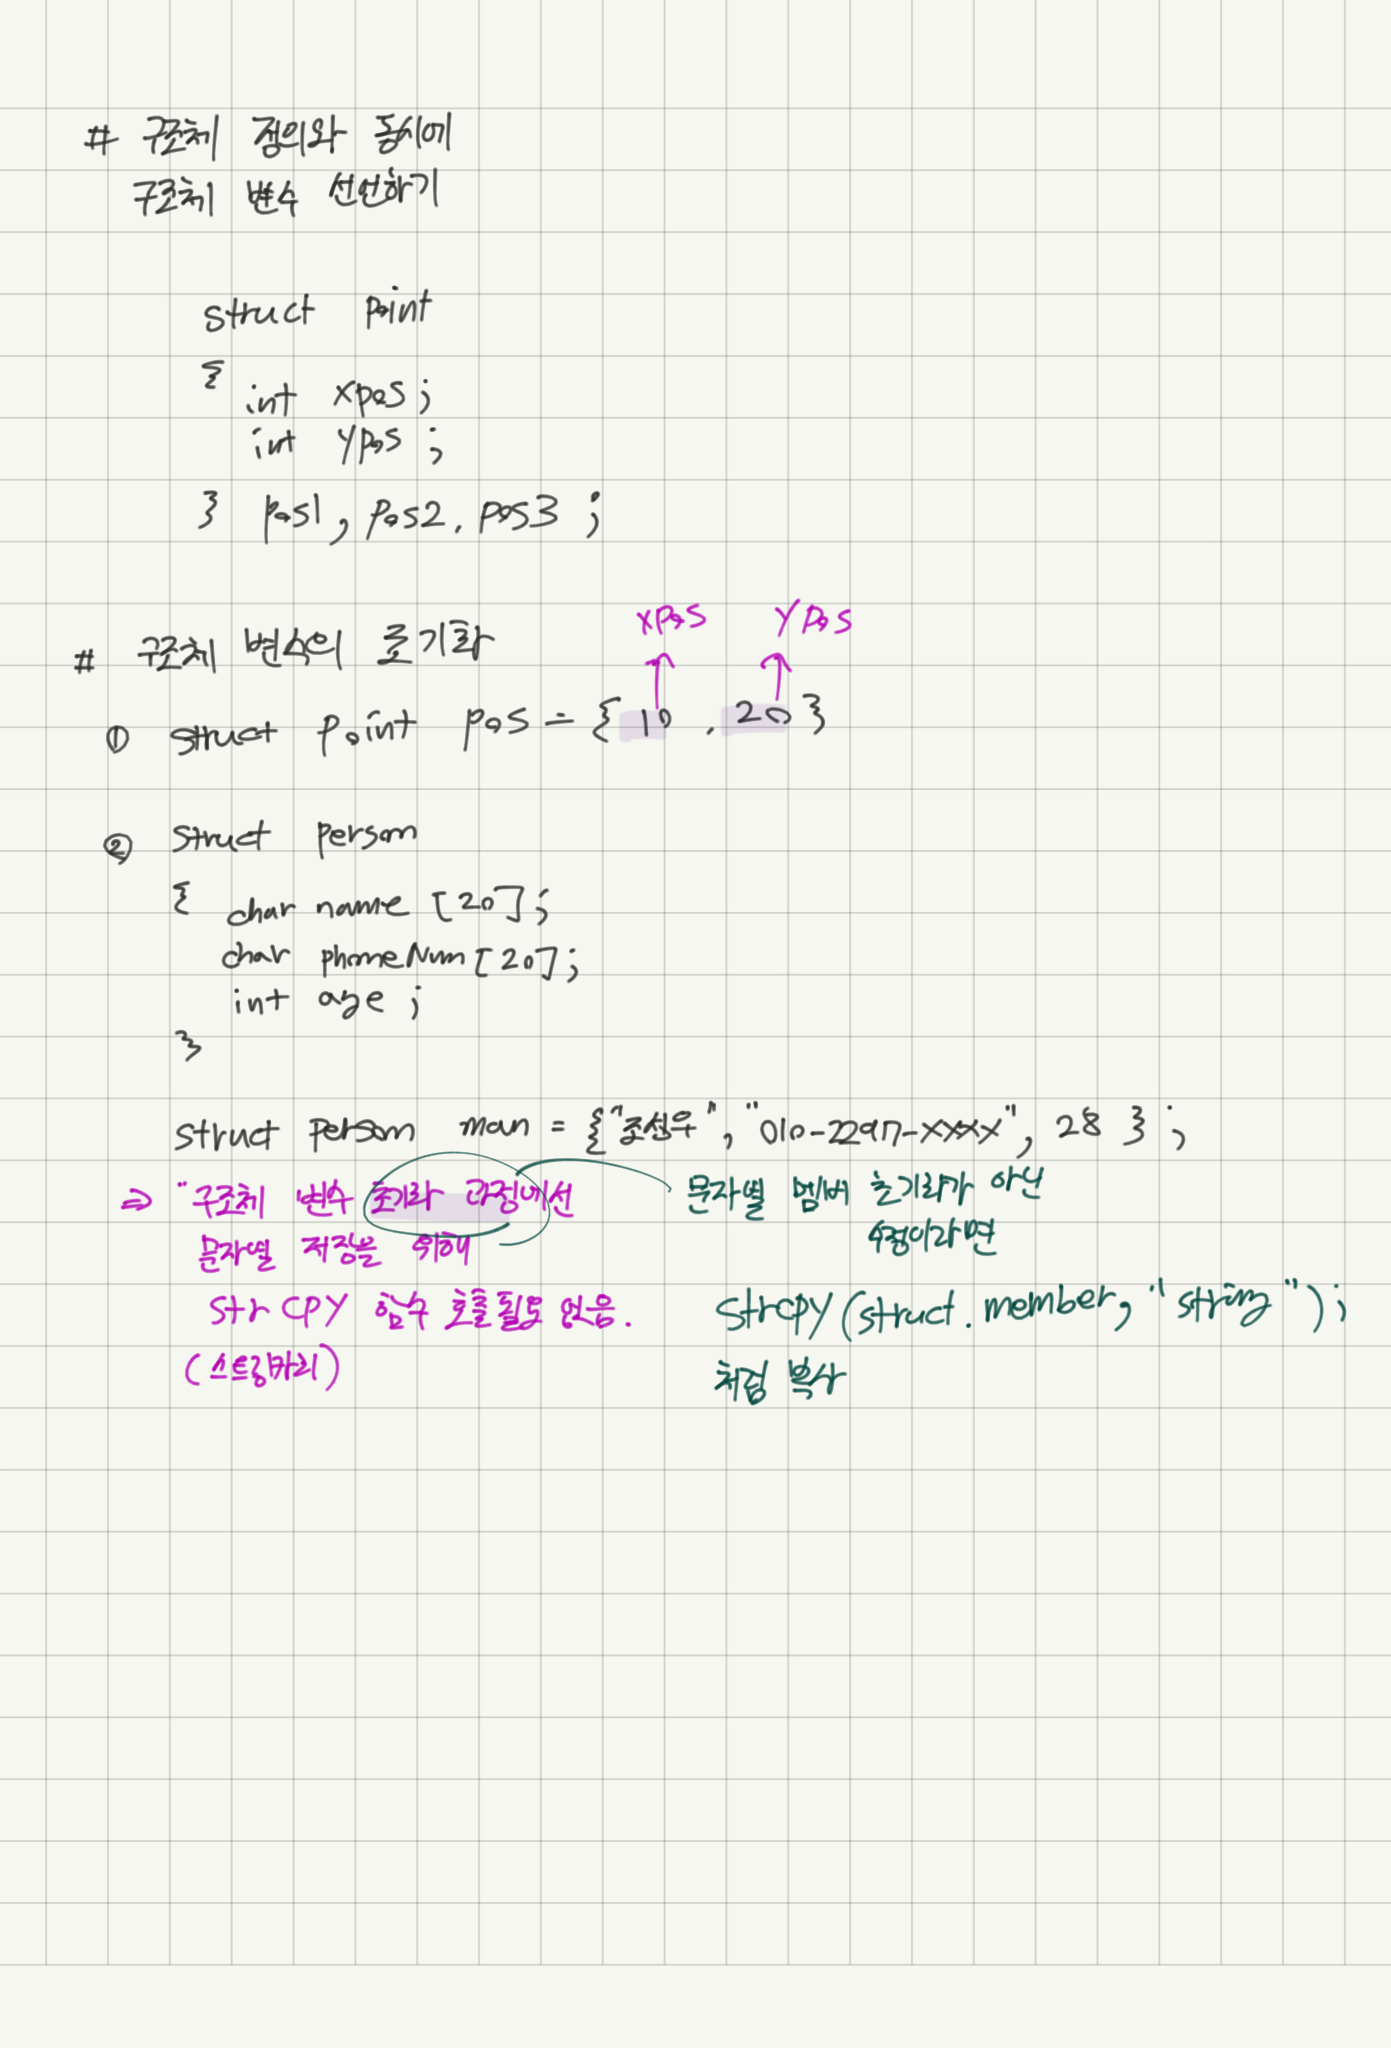 # 구조체 정의와 동시에
구조체 변수 선언하기
struct point
{
int xpos;
int ypos;
} pos1, pos2, pos3;
xpos ypos
# 구조체 변수의 초기화
① struct point pos = { 10 , 20 }
② struct person
{ char name [20];
char phoneNum [20];
int age ;
}
struct person man = {"조성우", "010-2297-xxxx", 28 } ;
⇒ "구조체 변수 초기화 과정에선
문자열 저장을 위해
strcpy 함수 호출 필요 없음.
(스트링카피)
문자열 멤버 초기화가 아닌
수정이라면
strcpy(struct.member, "string");
처럼 복사